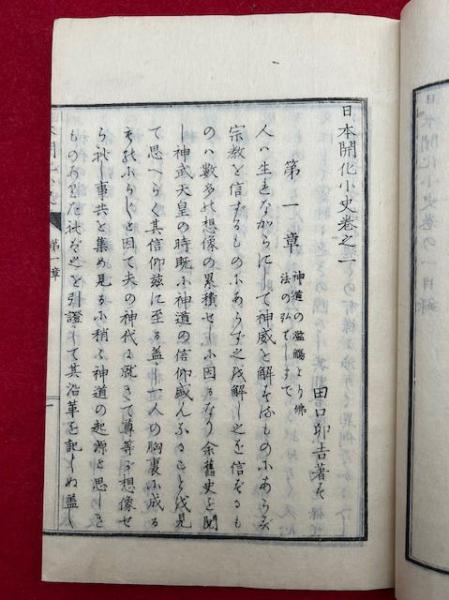 日本開化小史巻之一
田口卯吉著す
第一章 神道の濫觴より佛
法の弘まりしまで
人ハ生れながらにして神威と解するものにあらず
宗教を信ずるものにあらず之を解し之を信ずるも
のハ數多の想像の累積せしに因るなり余舊史を閲
し神武天皇の時既に神道の信仰盛んなることを見
て思へらく其信仰茲に至る蓋し人の胸裏に成る
そ
に因て夫の神代に就きて尊等の想像せ
られし事共を集め見るに稍神道の起源と思しき
ものあり
之を引證して其沿革を記しぬ蓋し
日本開化小史巻の一目録
第一章